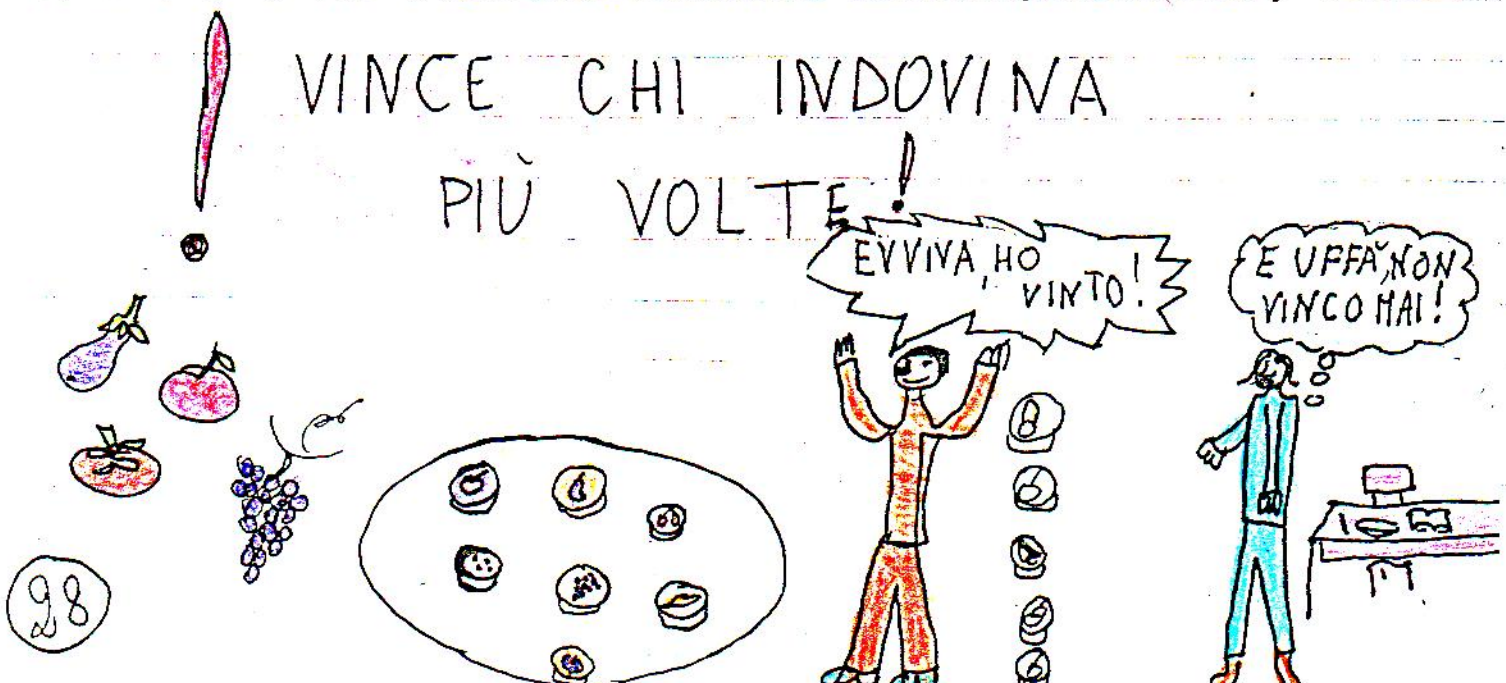 VINCE CHI INDOVINA
PIÙ VOLTE!
EVVIVA, HO
VINTO!
E UFFA, NON
VINCO MAI!
28